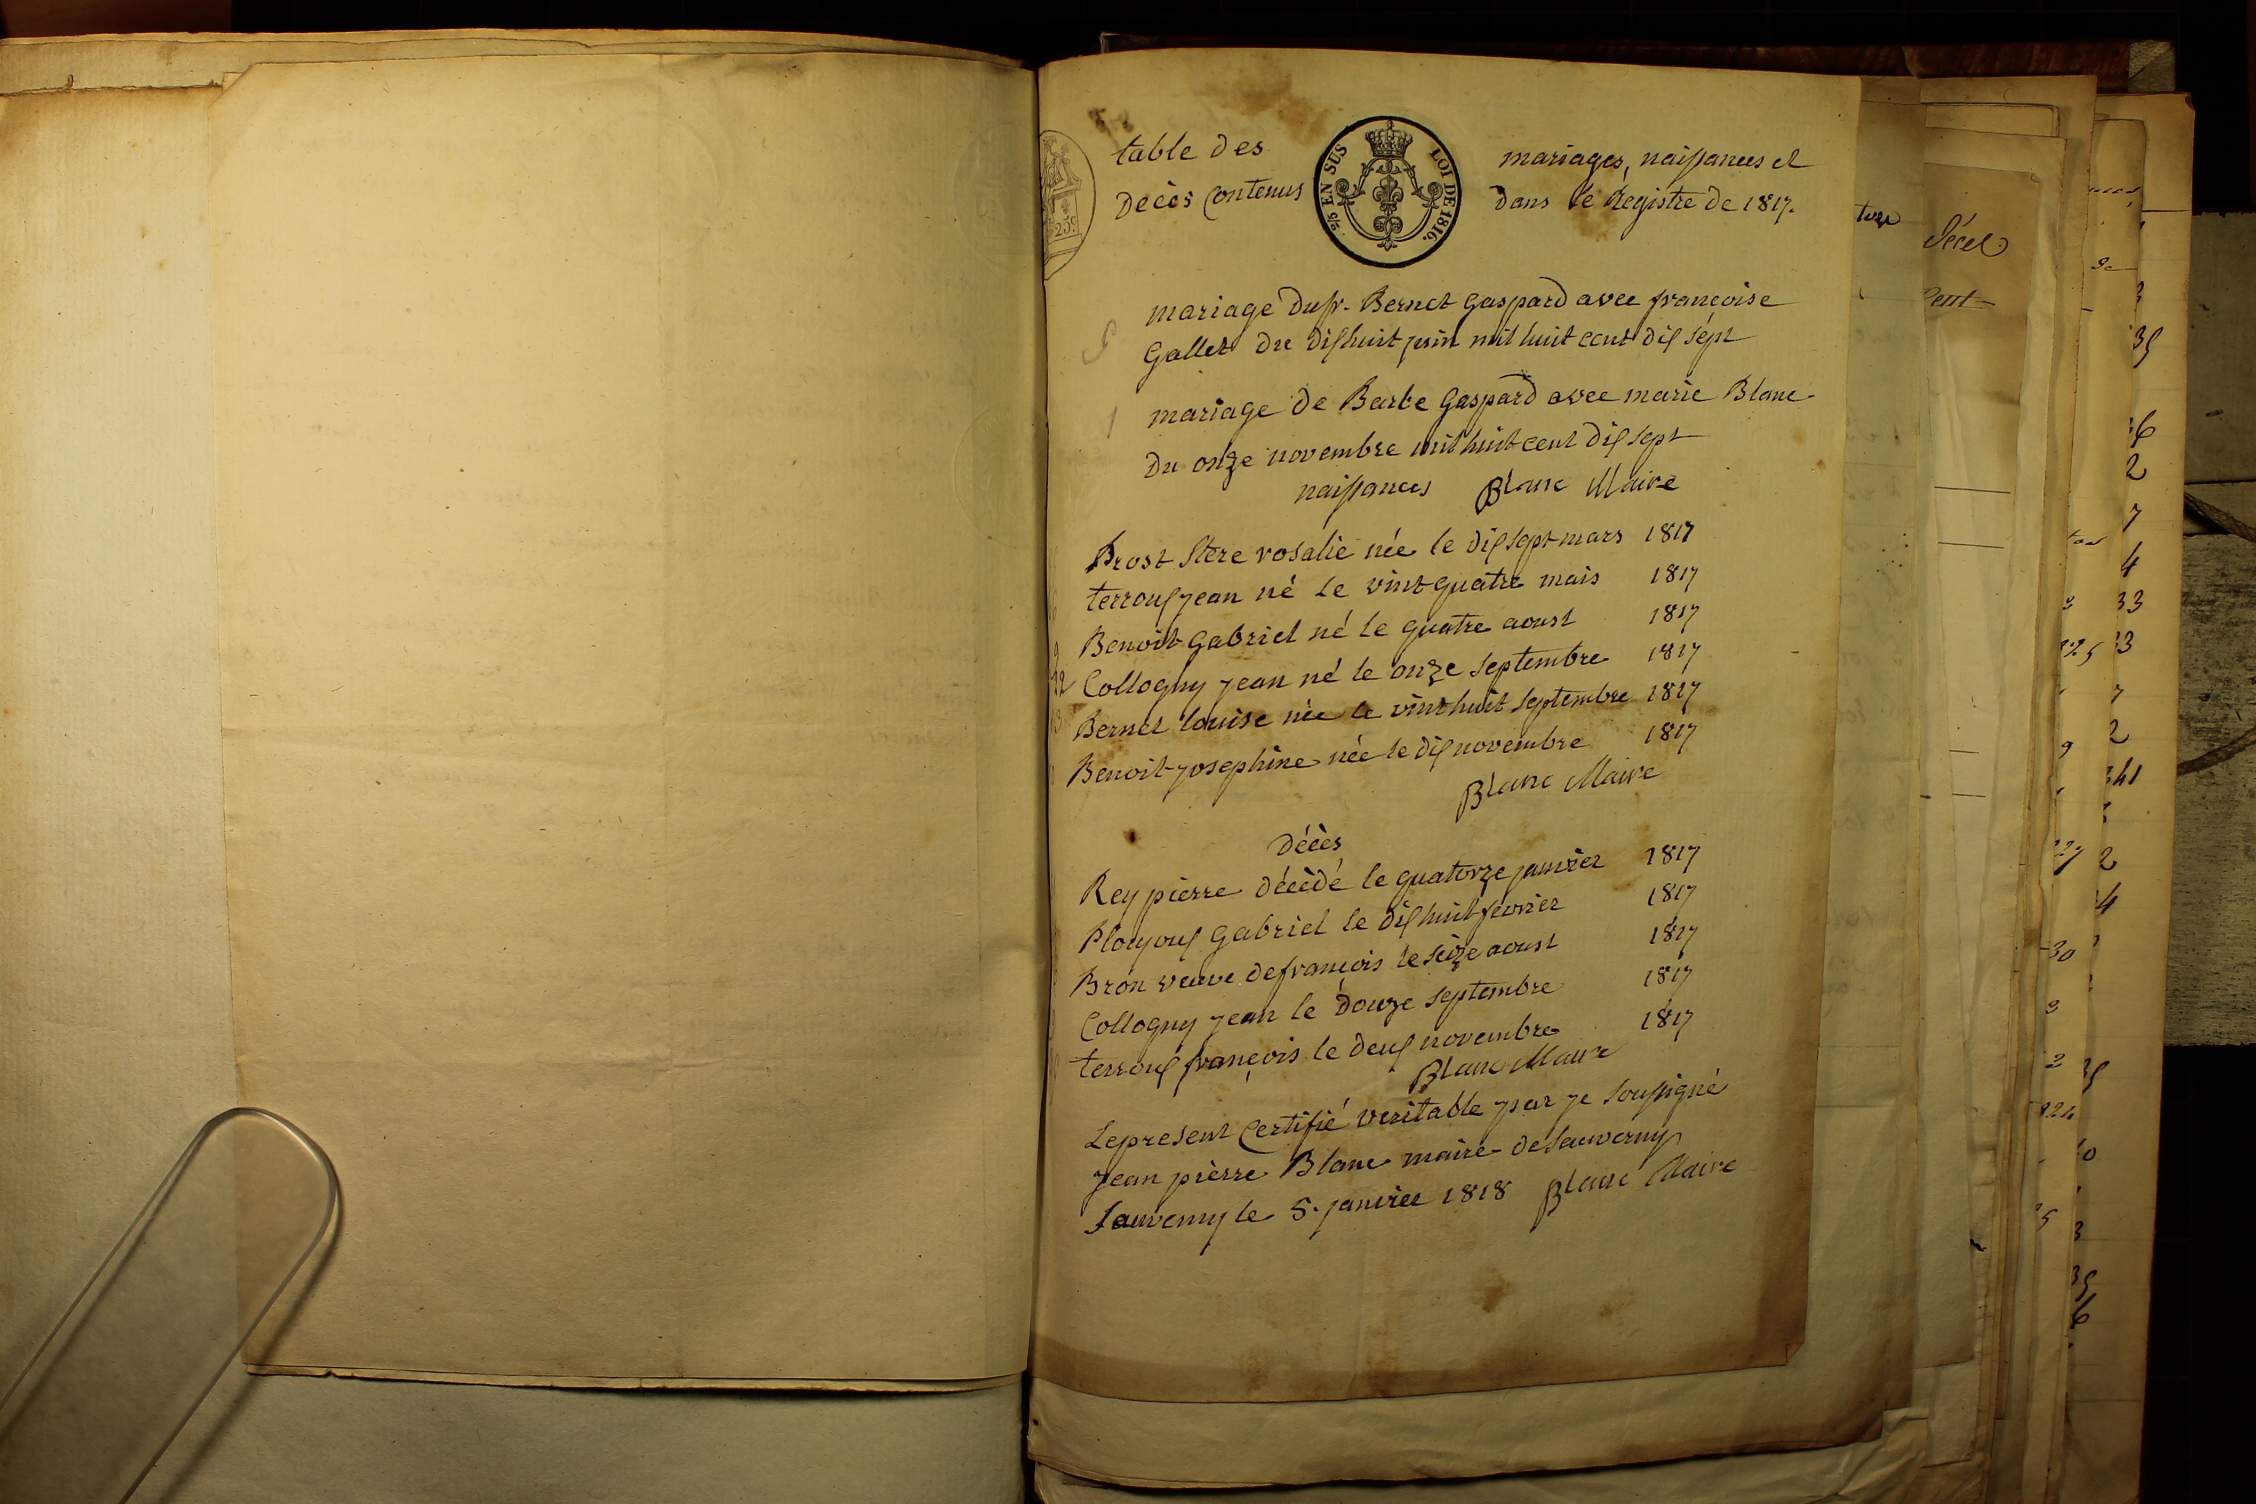 table des mariages, naissances et
Décès Contenus dans le Registre de 1817.
2/5 EN SUS LOI DE 1816.
25c
mariage du sr. Bernet Gaspard avec françoise
Gallet du dishuit juin mil huit cent dis sépt
mariage de Barbe Gaspard avec marie Blanc
Du onze novembre mil huit cent dis sept
naissances Blanc Maire
Prost Stere rosalie née le dis sept mars 1817
terroux jean né le vint quatre mais 1817
Benoit Gabriel né le quatre aoust 1817
Collogny jean né le onze septembre 1817
Bernet louise née le vint huit septembre 1817
Benoit josephine née le dix novembre 1817
Blanc Maire
Décès
Rey pierre décèdé le quatorze janvier 1817
Ploujoux Gabriel le dishuit fevrier 1817
Bron veuve de françois le seize aoust 1817
Collogny jean le douze septembre 1817
terroux françois le deux novembre 1817
Blanc Maire
Le present Certifié veritable par je soussigné
jean pièrre Blanc maire de sauverny
Sauverny le 5. janvier 1818 Blanc Maire